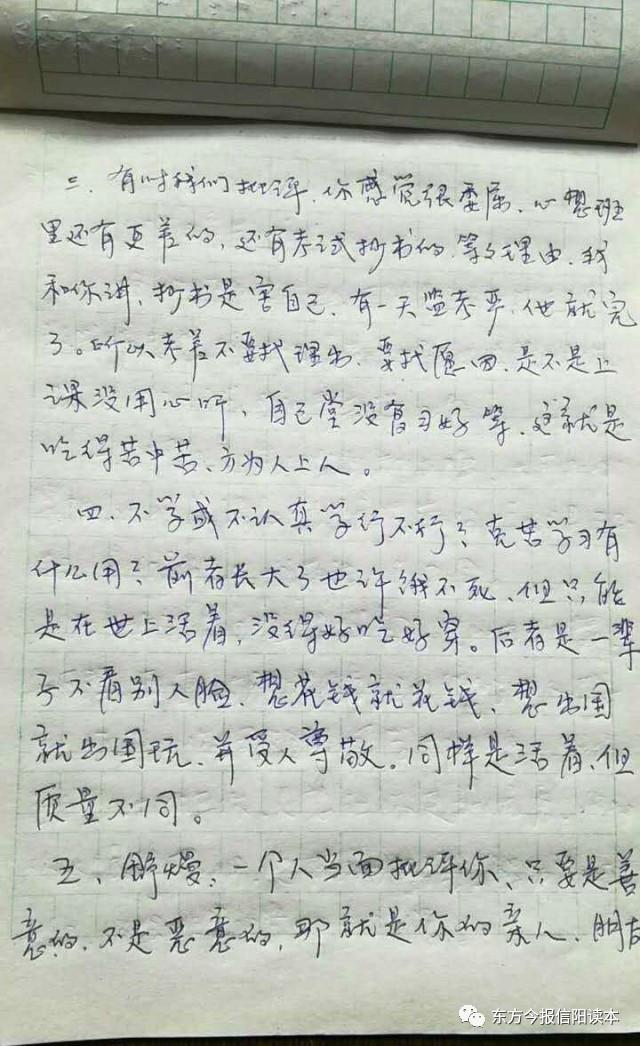 三、有时我们批评，你感觉很委屈、心想班
里还有更差的，还有考试抄书的，等等理由，我
和你讲，抄书是害自己，有一天监考严，他就完
了。所以考差不要找理由，要找愿因，是不是上
课没用心听，自己堂没复习好等，这就是
吃得苦中苦、方为人上人。
四、不学或不认真学行不行？克苦学习有
什么用？前者长大了也许饿不死、但只能
是在世上活着，没得好吃好穿。后者是一辈
子不看别人脸、想花钱就花钱、想出国
就出国玩、并受人尊敬。同样是活着、但
质量不同。
五、舒嫚：一个人当面批评你、只要是善
意的、不是恶意的，那就是你的亲人、朋友
东方今报信阳读本